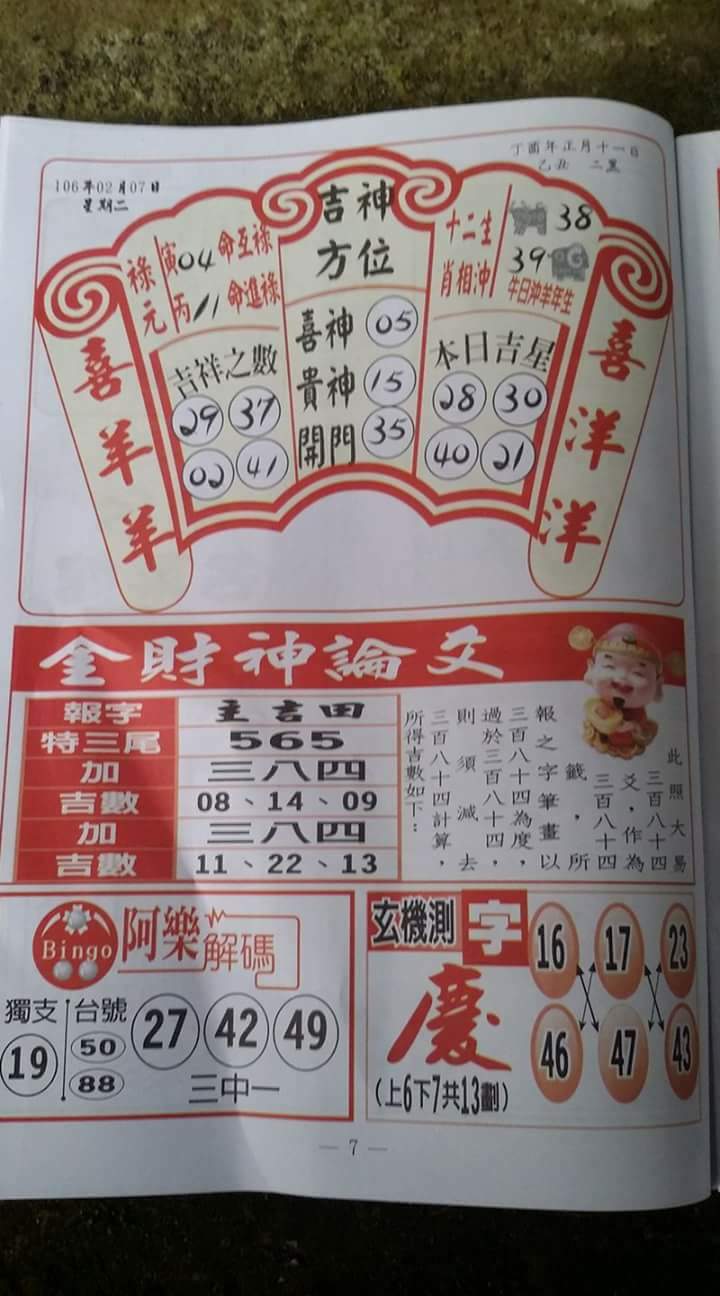 106年02月07日
星期二
丁酉年正月十一日
乙丑 二黑
吉神
方位
喜神 05
貴神 15
開門 35
祿元
寅04命互祿
丙11命進祿
吉祥之數
29 37
02 41
十二生
肖相沖
38
39
牛日沖羊年生
本日吉星
28 30
40 21
喜羊羊
喜洋洋
金財神論文
報字 主吉田
特三尾 565
加 三八四
吉數 08、14、09
加 三八四
吉數 11、22、13
此照大易
三百八十四
爻，作為
三百八十四
籤，所
報之字筆畫以
三百八十四為度，
過於三百八十四，
則須減去
三百八十四計算，
所得吉數如下：
Bingo
阿樂解碼
獨支
19
台號
50
88
27 42 49
三中一
玄機測字
慶
(上6下7共13劃)
16 17 23
46 47 43
— 7 —